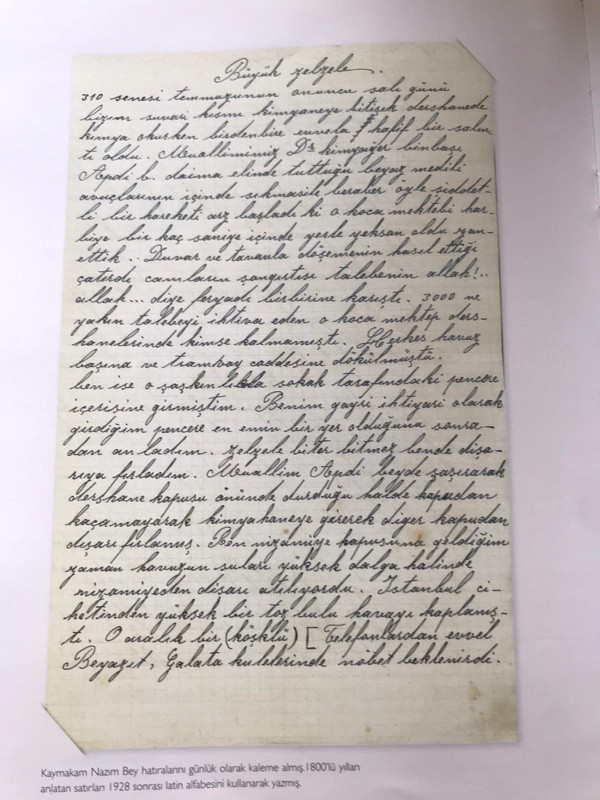 Büyük zelzele.
310 senesi temmuzunun onuncu salı günü
bizim suvari kısmı kimyaneye bitişik dershanede
kimya okurken birdenbire evvela hafif bir salın-
tı oldu. Muallimimiz Dr kimyager binbaşı
Apdi b. daima elinde tuttuğu beyaz medili
avuçlarının içinde sıkmasile beraber öyle şiddet-
li bir hareketi arz başladı ki o koca mektebi har-
biye bir kaç saniye içinde yerle yeksan oldu zan-
ettik. Duvar ve tavanla döşemenin hasıl ettiği
çatırdı camların şangırtısı talebenin allah!..
allah... diye feryadı birbirine karıştı. 3000 ne
yakın talebeyi ihtiva eden o koca mektep ders-
hanelerinde kimse kalmamıştı. Herkes havuz
başına ve tramvay caddesine dökülmüştü.
ben ise o şaşkınlıkla sokak tarafındaki pencere
içerisine girmiştim. Benim gayri ihtiyari olarak
girdiğim pencere en emin bir yer olduğunu sonra-
dan anladım. Zelzele biter bitmez bende dişa-
rıya fırladım. Muallim Apdi beyde şaşırarak
dershane kapusu önünde durduğu halde kapudan
kaçamayarak kimyahaneye girerek diger kapudan
dışarı fırlamış. Ben nizamiye kapusuna geldiğim
zaman havuzun suları yüksek dalga halinde
nizamiyeden dişarı atılıyordu. İstanbul ci-
hetinden yüksek bir toz bulu havayı kaplamış-
tı. O aralık bir (köşklü) [Telefonlardan evvel
Beyazıt, Galata kulelerinde nöbet beklenirdi.
Kaymakam Nazım Bey hatıralarını günlük olarak kaleme almış.1800'lü yılları
anlatan satırları 1928 sonrası latin alfabesini kullanarak yazmış.